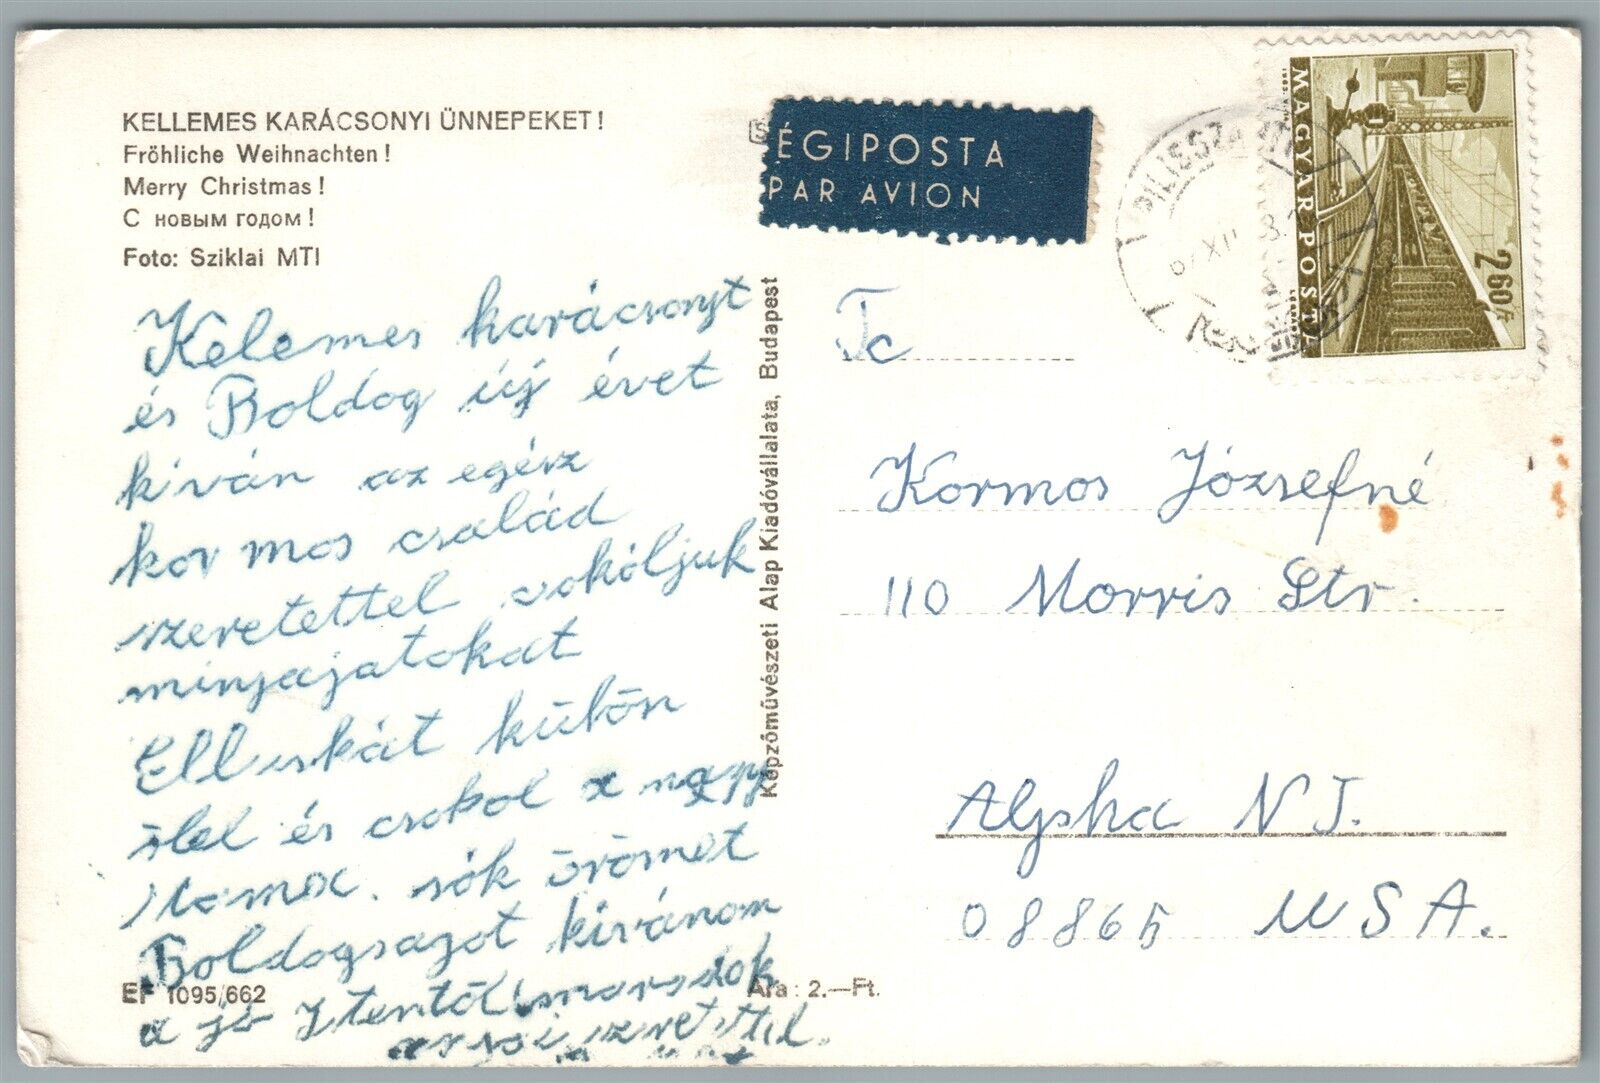 KELLEMES KARÁCSONYI ÜNNEPEKET!
Fröhliche Weihnachten!
Merry Christmas!
С новым годом!
Foto: Sziklai MTI
Kelemes karácsonyt
és Boldog új évet
kíván az egész
kormos család
szeretettel sokóljuk
minjajatokat
Elluskát külön
ölel és csokol a nagy
Mama. sók örömet
Boldogsagot kívánom
a jó Istentöl maradok
szeretettel.
EF 1095/662
Ára: 2.—Ft.
Képzőművészeti Alap Kiadóvállalata, Budapest
LÉGIPOSTA
PAR AVION
MAGYAR POSTA
2 60 Ft
To
Kormos Józsefné
110 Morris Str.
Alpha N J.
08865 U S A.